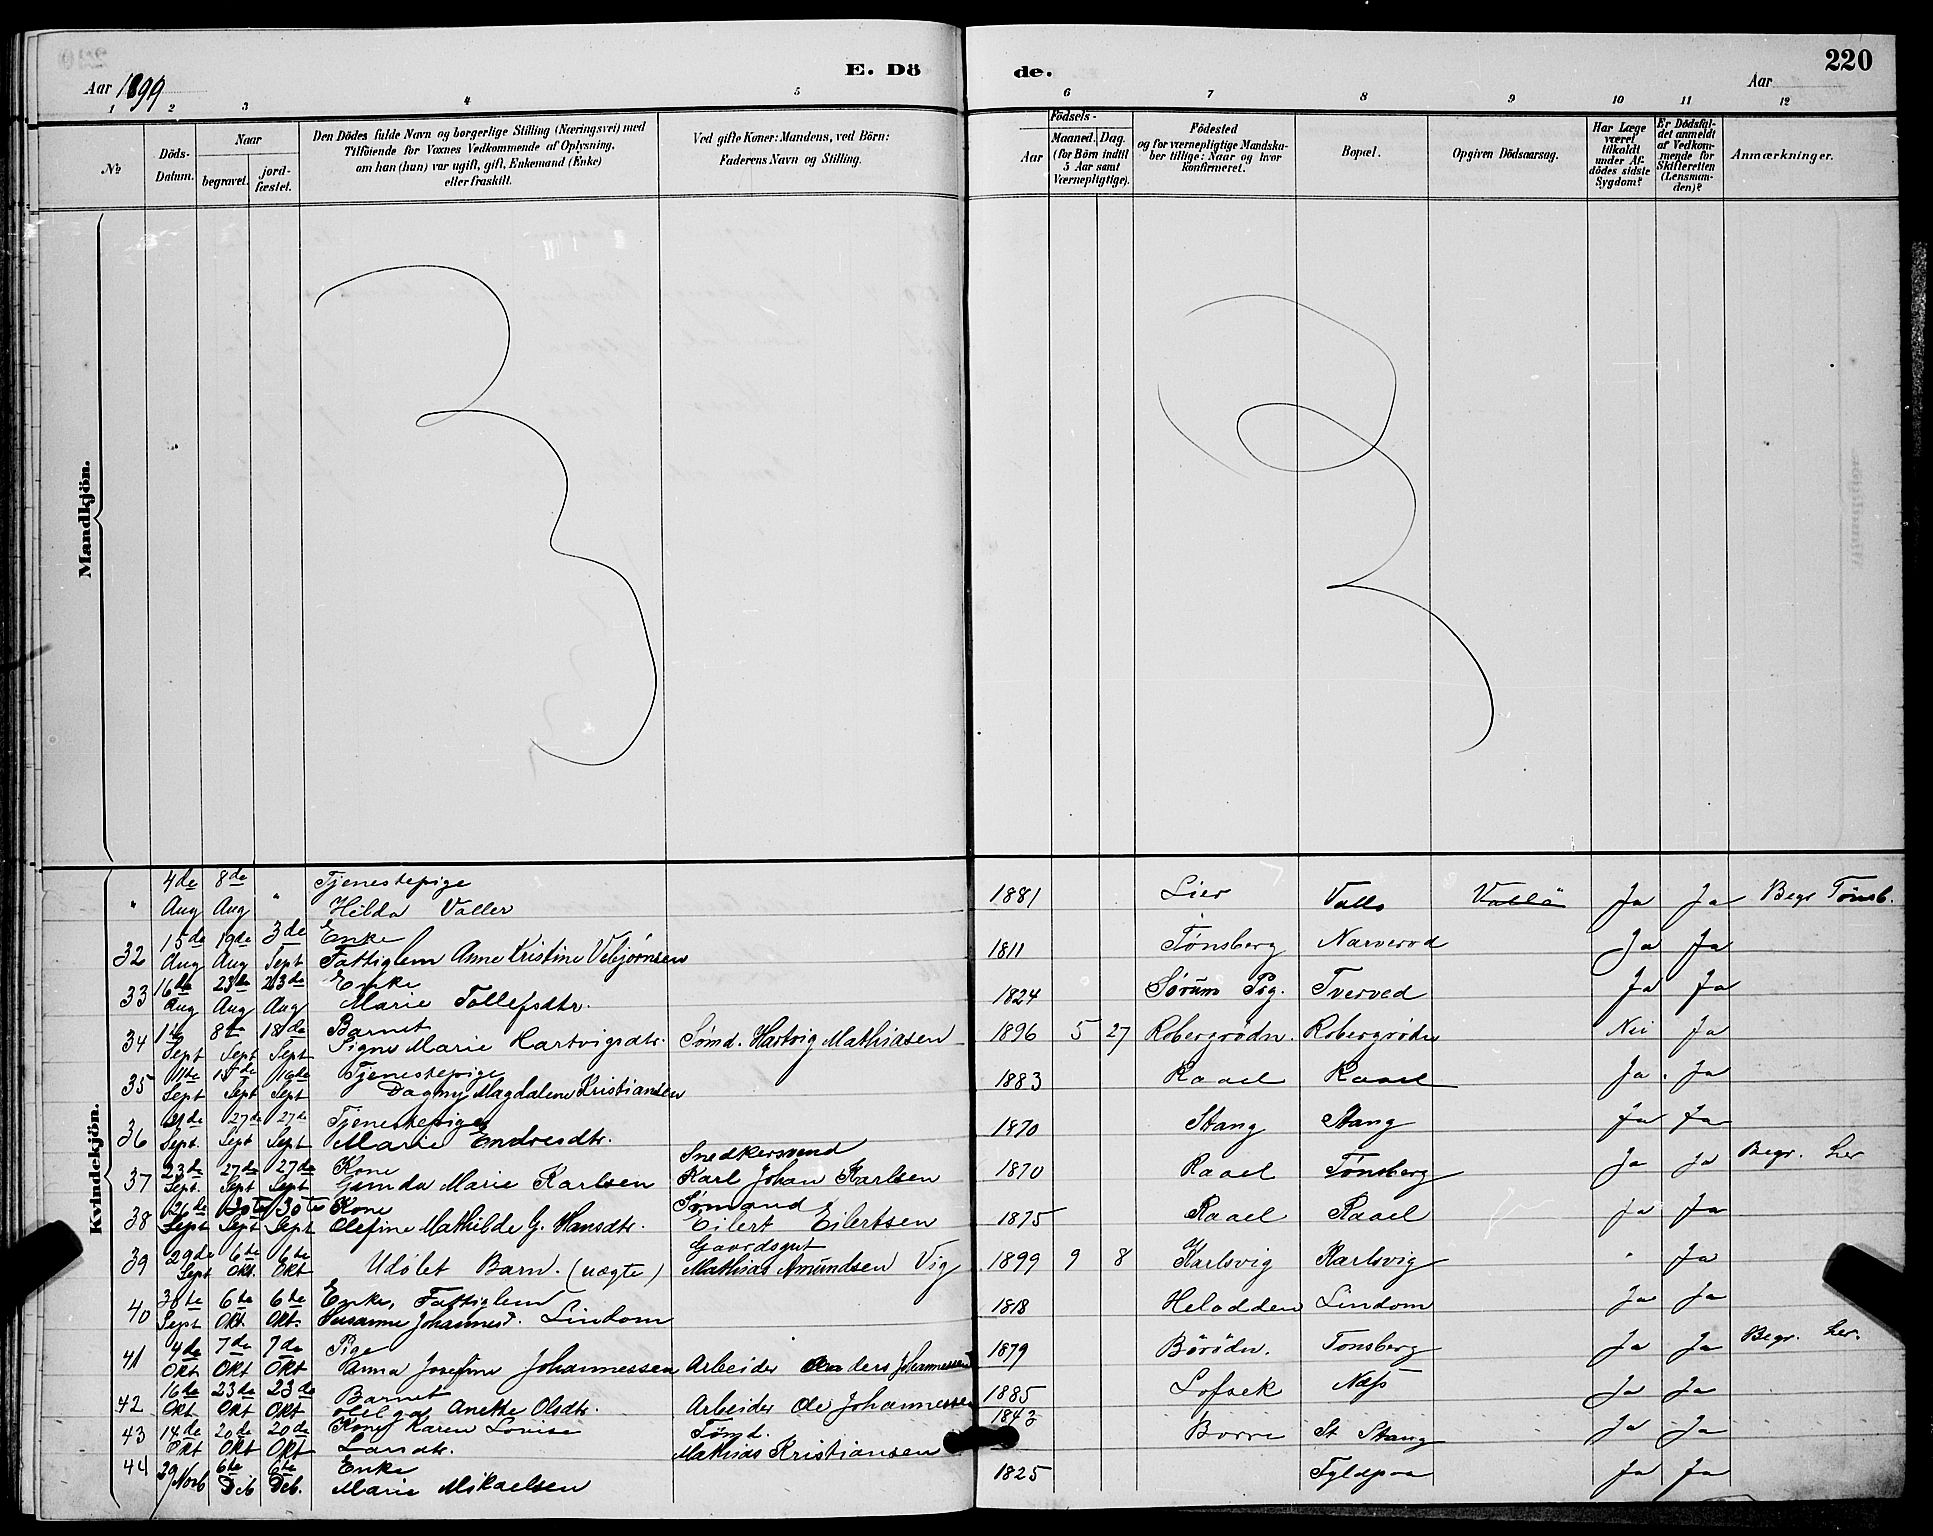 Aar 1899
E. Dö
de.
Aar
220
1 2 3 4 5 6 7 8 9 10 11 12
№
Döds-Datum.
Naar
begravet.
jord-fæstet.
Den Dödes fulde Navn og borgerlige Stilling (Næringsvei) med
Tilföiende for Voxnes Vedkommende af Oplysning,
om han (hun) var ugift, gift, Enkemand (Enke)
eller fraskilt.
Ved gifte Koner: Mandens, ved Börn:
Faderens Navn og Stilling.
Födsels-
Aar
Maaned. Dag.
(for Börn indtil
5 Aar samt
Værnepligtige).
Födested
og for værnepligtige Mandska-
ber tillige: Naar og hvor
konfirmeret.
Bopæl.
Opgiven Dödsaarsag.
Har Læge
været
tilkaldt
under Af-
dödes sidste
Sygdom?
Er Dödsfal-
det anmeldt
af Vedkom-
mende for
Skifteretten
(Lensman-
den)?
Anmærkninger.
Mandkjön.
Kvindekjön.
" 4de Aug 8de Aug " Tjenestepige
Hilda Valler 1881 Lier Vallø Vallö Ja Ja Begr Tønsb.
32 15de Aug 19de Aug 3de Sept Enke
Fattiglem Anne Kristine Vebjørnsen 1811 Tønsberg Narverod Ja Ja
33 16de Aug 23de Aug 23de Aug Enke
Marie Tollefsdtr. 1824 Sørum Pg. Tverved Ja Ja
34 Sept 8de Sept 18de Sept Barnet
Signe Marie Hartvigsdtr. Sømd. Hartvig Mathiasen 1896 5 27 Robergrødn. Robergrødn Nei Ja
35 11te Sept 15de Sept 16de Sept Tjenestepige
Dagny Magdalene Kristiansen 1883 Raael Raael Ja Ja
36 Sept. 27de Sept 27de Sept Tjenestepige
Marie Endresdtr. 1870 Stang Stang Ja Ja
37 23de Sept. 27de Sept 27de Sept Kone
Gunda Marie Karlsen Snedkersvend
Karl Johan Karlsen 1870 Raael Tønsberg Ja Ja Begr. her
38 26de Sept 30te Sept 30te Sept Kone
Olefine Mathilde G. Hansdtr. Sømand
Eilert Eilertsen 1875 Raael Raael Ja Ja
39 29de Sept 6te Okt. 6te Okt Udölet Barn. (uægte) Gaardsgut
Mathias Amundsen Vig 1899 9 8 Karlsvig Karlsvig " Ja
40 30te Sept 6te Okt 6te Okt. Enke, Fattiglem
Susanne Johannesd. Lindom 1818 Heladden Lindom Ja Ja
41 4de Okt 7de Okt 7de Okt Pige
Anna Josefine Johannessen Arbeider Anders Johannessen 1879 Börödn. Tønsberg Ja Ja Begr. her.
42 16te Okt 23de Okt 23de Okt Barnet
Helga Anethe Olsdtr. Arbeider Ole Johannessen 1885 Lofsek Næss Ja Ja
43 14de Okt 20de Okt 20de Okt Kone Karen Lovise
Larsdtr. Tømd.
Mathias Kristiansen 1843 Borre St Stang Ja Ja
44 29 Novb 6te Dcb 6te Dcb. Enke
Marie Mikaelsen 1825 Fyldpaa Ja Ja